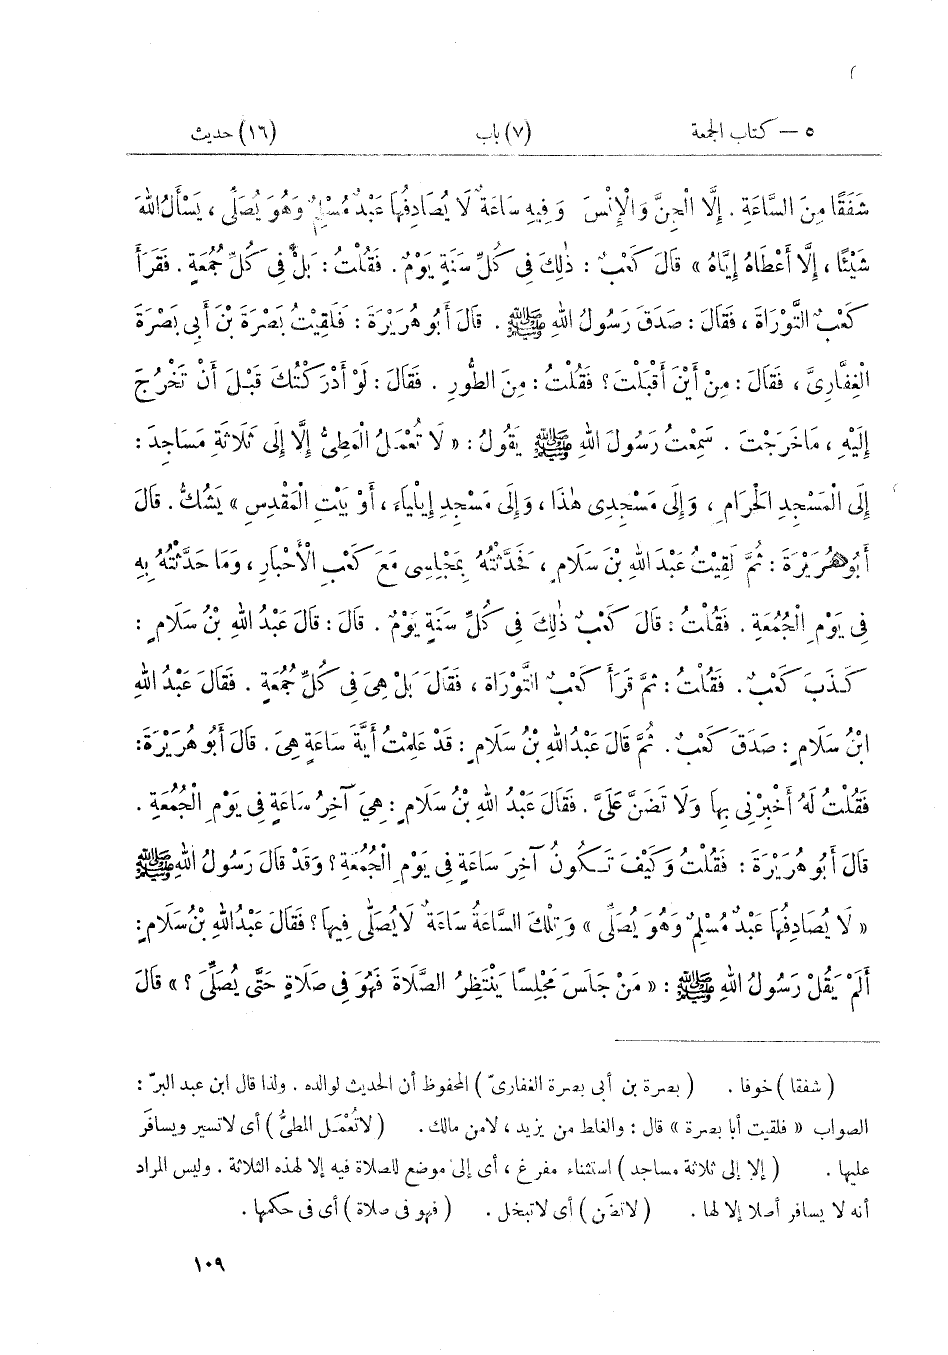 ٥ – كتاب الجمعة (٧) باب (١٦) حديث
شَفَقًا مِنَ السَّاعَةِ . إِلَّا الْجِنَّ وَالْإِنْسَ وَفِيهِ سَاعَةٌ لَا يُصَادِفُهَا عَبْدٌ مُسْلِمٌ وَهُوَ يُصَلِّى ، يَسْأَلُ اللهَ
شَيْئًا ، إِلَّا أَعْطَاهُ إِيَّاهُ » قَالَ كَعْبٌ : ذٰلِكَ فِى كُلِّ سَنَةٍ يَوْمٌ . فَقُلْتُ : بَلْ فِى كُلِّ جُمُعَةٍ . فَقَرَأَ
كَعْبٌ التَّوْرَاةَ ، فَقَالَ : صَدَقَ رَسُولُ اللهِ ﷺ . قَالَ أَبُو هُرَيْرَةَ : فَلَقِيتُ بَصْرَةَ بْنَ أَبِى بَصْرَةَ
الْغِفَارِىَّ ، فَقَالَ : مِنْ أَيْنَ أَقْبَلْتَ ؟ فَقُلْتُ : مِنَ الطُّورِ . فَقَالَ : لَوْ أَدْرَكْتُكَ قَبْلَ أَنْ تَخْرُجَ
إِلَيْهِ ، مَا خَرَجْتَ . سَمِعْتُ رَسُولَ اللهِ ﷺ يَقُولُ : « لَا تُعْمَلُ الْمَطِىُّ إِلَّا إِلَى ثَلَاثَةِ مَسَاجِدَ :
إِلَى الْمَسْجِدِ الْحَرَامِ ، وَإِلَى مَسْجِدِى هٰذَا ، وَإِلَى مَسْجِدِ إِيلِيَاءَ ، أَوْ بَيْتِ الْمَقْدِسِ » يَشُكُّ . قَالَ
أَبُو هُرَيْرَةَ : ثُمَّ لَقِيتُ عَبْدَ اللهِ بْنَ سَلَامٍ ، فَحَدَّثْتُهُ بِمَجْلِسِى مَعَ كَعْبِ الْأَحْبَارِ ، وَمَا حَدَّثْتُهُ بِهِ
فِى يَوْمِ الْجُمُعَةِ . فَقُلْتُ : قَالَ كَعْبٌ ذٰلِكَ فِى كُلِّ سَنَةٍ يَوْمٌ . قَالَ : قَالَ عَبْدُ اللهِ بْنُ سَلَامٍ :
كَذَبَ كَعْبٌ . فَقُلْتُ : ثُمَّ قَرَأَ كَعْبٌ التَّوْرَاةَ ، فَقَالَ بَلْ هِىَ فِى كُلِّ جُمُعَةٍ . فَقَالَ عَبْدُ اللهِ
ابْنُ سَلَامٍ : صَدَقَ كَعْبٌ . ثُمَّ قَالَ عَبْدُ اللهِ بْنُ سَلَامٍ : قَدْ عَلِمْتُ أَيَّةَ سَاعَةٍ هِىَ . قَالَ أَبُو هُرَيْرَةَ :
فَقُلْتُ لَهُ أَخْبِرْنِى بِهَا وَلَا تَضَنَّ عَلَىَّ . فَقَالَ عَبْدُ اللهِ بْنُ سَلَامٍ : هِيَ آخِرُ سَاعَةٍ فِى يَوْمِ الْجُمُعَةِ .
قَالَ أَبُو هُرَيْرَةَ : فَقُلْتُ وَكَيْفَ تَكُونُ آخِرَ سَاعَةٍ فِى يَوْمِ الْجُمُعَةِ ؟ وَقَدْ قَالَ رَسُولُ اللهِ ﷺ
« لَا يُصَادِفُهَا عَبْدٌ مُسْلِمٌ وَهُوَ يُصَلِّى » وَتِلْكَ السَّاعَةُ سَاعَةٌ لَا يُصَلَّى فِيهَا ؟ فَقَالَ عَبْدُ اللهِ بْنُ سَلَامٍ :
أَلَمْ يَقُلْ رَسُولُ اللهِ ﷺ : « مَنْ جَلَسَ مَجْلِسًا يَنْتَظِرُ الصَّلَاةَ فَهُوَ فِى صَلَاةٍ حَتَّى يُصَلِّىَ ؟ » قَالَ
( شفقا ) خوفا . ( بصرة بن أبى بصرة الغفارىّ ) المحفوظ أن الحديث لوالده . ولذا قال ابن عبد البرّ :
الصواب « فلقيت أبا بصرة » قال : والغلط من يزيد ، لا من مالك . ( لا تُعْمَل المطىُّ ) أى لا تسير ويسافَر
عليها . ( إلا إلى ثلاثة مساجد ) استثناء مفرغ ، أى إلى موضع للصلاة فيه إلا لهذه الثلاثة . وليس المراد
أنه لا يسافر أصلا إلا لها . ( لا تضن ) أى لا تبخل . ( فهو فى صلاة ) أى فى حكمها .
١٠٩